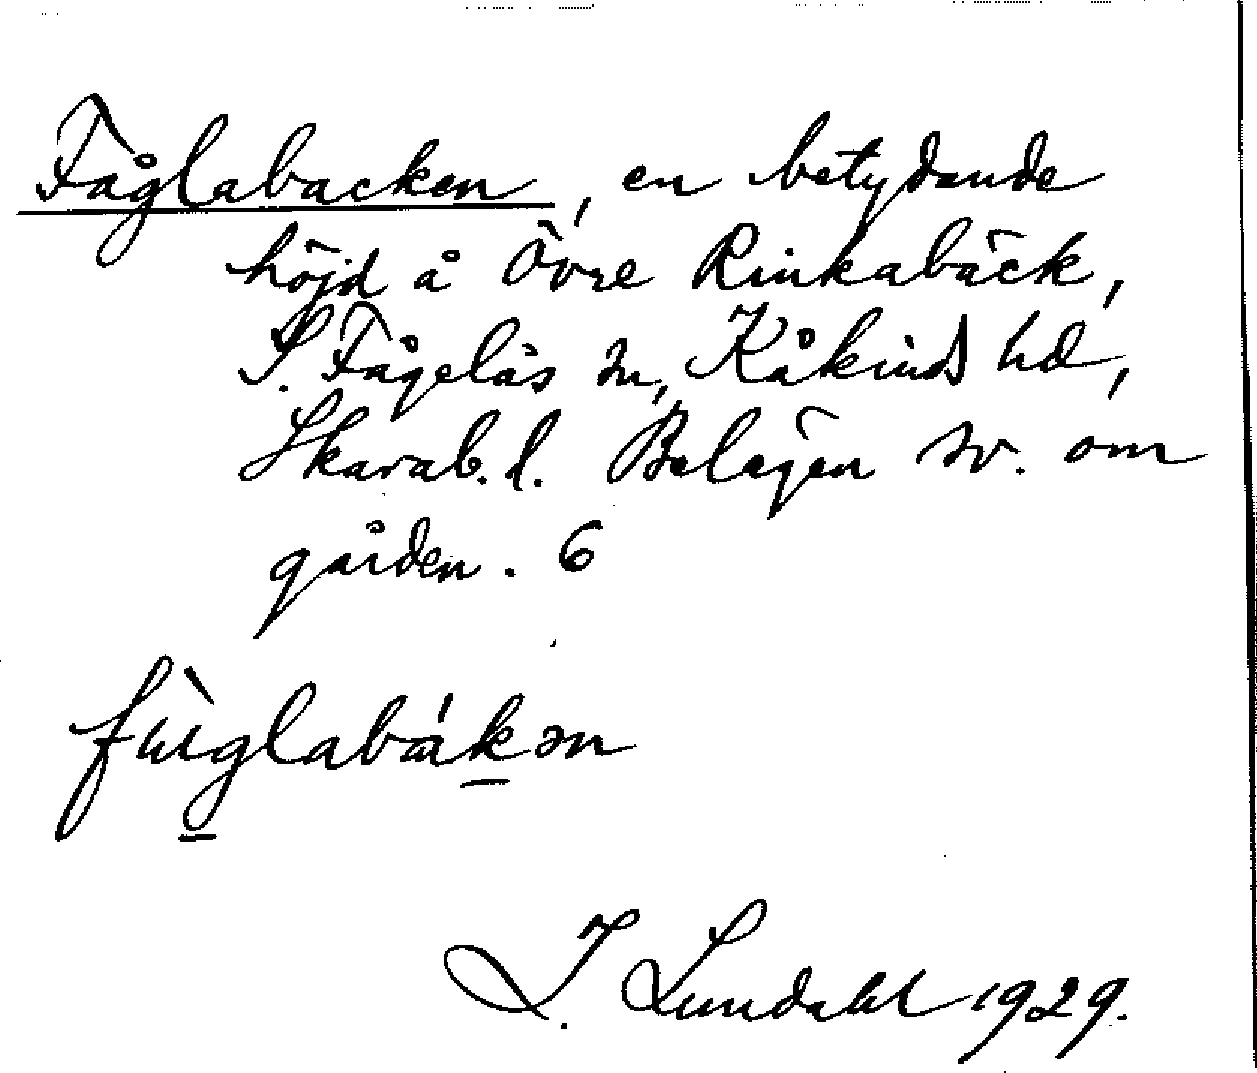 Fåglabacken, en betydande
höjd å Övre Rinkabäck,
S. Fågelås sn, Kåkinds hd,
Skarab. l. Belägen sv. om
gården. 6
fùglabákən
I. Lundahl 1929.